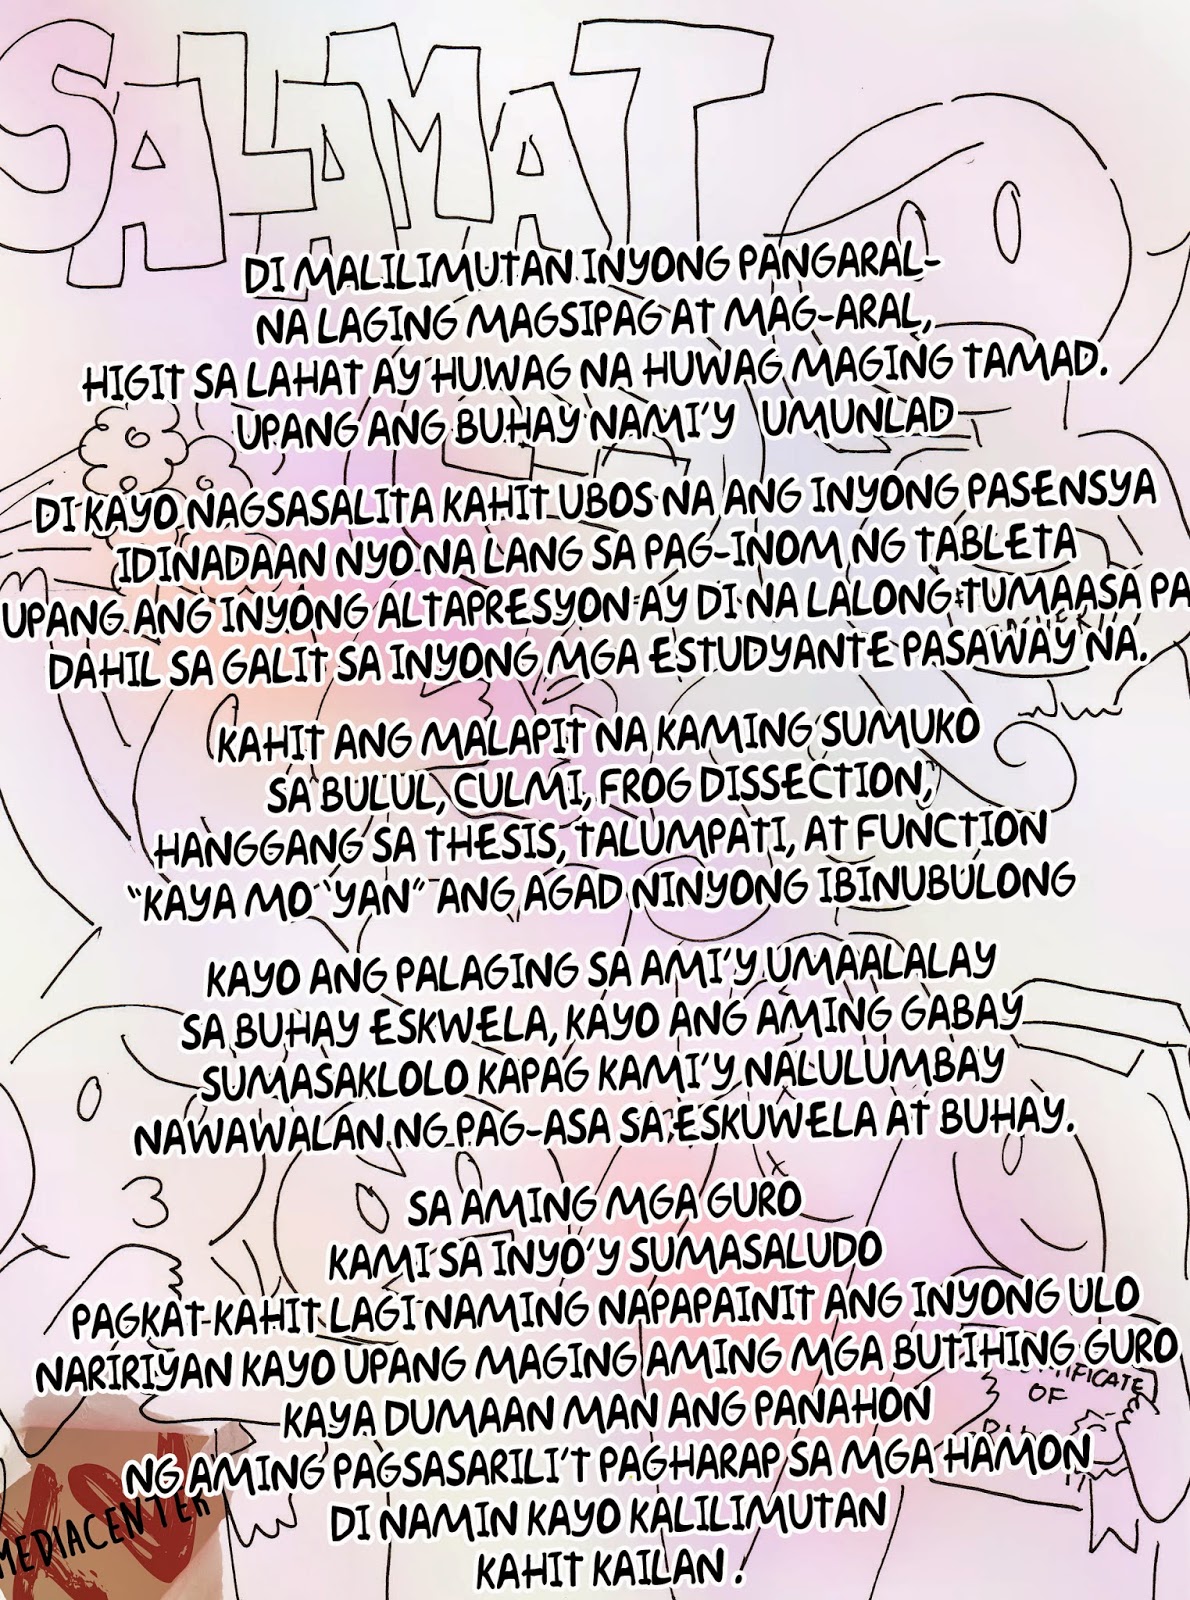 SALAMAT
DI MALILIMUTAN INYONG PANGARAL-
NA LAGING MAGSIPAG AT MAG-ARAL,
HIGIT SA LAHAT AY HUWAG NA HUWAG MAGING TAMAD.
UPANG ANG BUHAY NAMI'Y UMUNLAD
DI KAYO NAGSASALITA KAHIT UBOS NA ANG INYONG PASENSYA
IDINADAAN NYO NA LANG SA PAG-INOM NG TABLETA
UPANG ANG INYONG ALTAPRESYON AY DI NA LALONG TUMAASA PA
DAHIL SA GALIT SA INYONG MGA ESTUDYANTE PASAWAY NA.
KAHIT ANG MALAPIT NA KAMING SUMUKO
SA BULUL, CULMI, FROG DISSECTION,
HANGGANG SA THESIS, TALUMPATI, AT FUNCTION
"KAYA MO 'YAN" ANG AGAD NINYONG IBINUBULONG
KAYO ANG PALAGING SA AMI'Y UMAALALAY
SA BUHAY ESKWELA, KAYO ANG AMING GABAY
SUMASAKLOLO KAPAG KAMI'Y NALULUMBAY
NAWAWALAN NG PAG-ASA SA ESKUWELA AT BUHAY.
SA AMING MGA GURO
KAMI SA INYO'Y SUMASALUDO
PAGKAT KAHIT LAGI NAMING NAPAPAINIT ANG INYONG ULO
NARIRIYAN KAYO UPANG MAGING AMING MGA BUTIHING GURO
OF
KAYA DUMAAN MAN ANG PANAHON
NG AMING PAGSASARILI'T PAGHARAP SA MGA HAMON
DI NAMIN KAYO KALILIMUTAN
KAHIT KAILAN!
MEDIACENTER